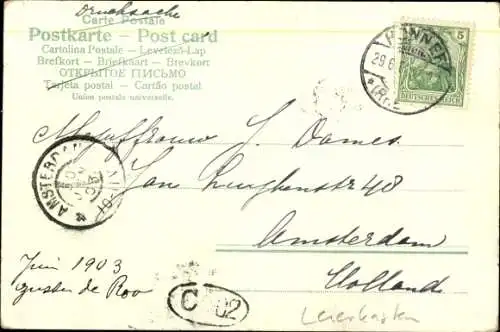 Drucksache
Carte Postale
Postkarte — Post card
Cartolina Postale — Levelező-Lap
Brefkort — Briefkaart — Brevkort
ОТКРЫТОЕ ПИСЬМО
Tarjeta postal — Cartão postal
Union postale universelle.
HONNEF
29.6
5
DEUTSCHES REICH
Mejuffrouw J. Dames
Jan Luykenstr 48
Amsterdam
Holland
AMSTERDAM
Juni 1903
de Roo
C 02
Leierkasten